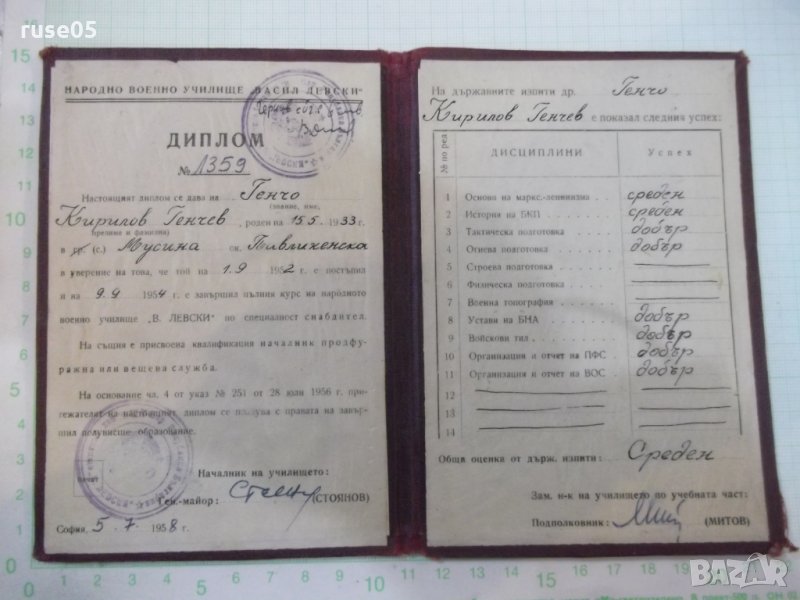 ruse05
НАРОДНО ВОЕННО УЧИЛИЩЕ "ВАСИЛ ЛЕВСКИ"
ДИПЛОМ
№ 1359
Настоящият диплом се дава на Генчо
(звание, име,
Кирилов Генчев, роден на 15.5 1933 г.
презиме и фамилия)
в гр. (с.) Мусина ок.
в уверение на това, че той на 1.9 1952 г. е постъпил
и на 9.9 1954 г. е завършил пълния курс на народното
военно училище „В. ЛЕВСКИ" по специалност снабдител.
На същия е присвоена квалификация началник продфу-
ражна или вещева служба.
На основание чл. 4 от указ № 251 от 28 юли 1956 г. при-
тежателят на настоящият диплом се ползува с правата на завър-
шил полувисше образование.
Началник на училището:
Печат
Ген.-майор: (СТОЯНОВ)
София 5.7 1958 г.
На държавните изпити др. Генчо
Кирилов Генчев е показал следния успех:
№ по ред ДИСЦИПЛИНИ Успех
1 Основи на маркс.-ленинизма среден
2 История на БКП среден
3 Тактическа подготовка добър
4 Огнева подготовка добър
5 Строева подготовка
6 Физическа подготовка
7 Военна топография
8 Устави на БНА добър
9 Войскови тил добър
10 Организация и отчет на ПФС добър
11 Организация и отчет на ВОС добър
12
13
14
Обща оценка от държ. изпити: Среден
Зам. н-к на училището по учебната част:
Подполковник: (МИТОВ)
BAZAR